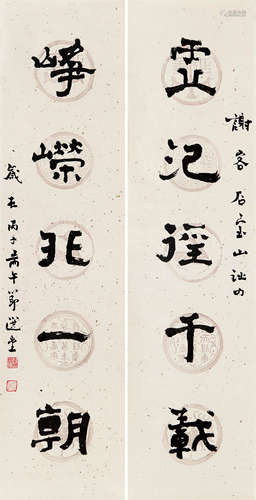 謝客石室山詩句
虛氾徑千載
崢嶸非一朝
歲在丙子耑午節選堂